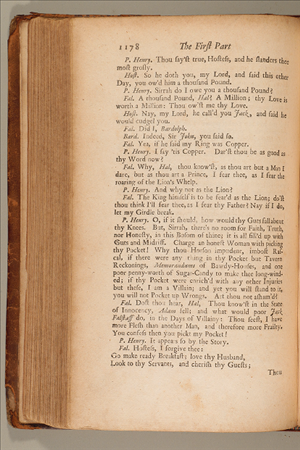 1178 The First Part
P. Henry. Thou say'st true, Hostess, and he slanders thee
most grosly.
Host. So he doth you, my Lord, and said this other
Day, you ow'd him a thousand Pound.
P. Henry. Sirrah do I owe you a thousand Pound?
Fal. A thousand Pound, Hal? A Million; thy Love is
worth a Million: Thou ow'st me thy Love.
Host. Nay, my Lord, he call'd you Jack, and said he
would cudgel you.
Fal. Did I, Bardolph.
Bard. Indeed, Sir John, you said so.
Fal. Yea, if he said my Ring was Copper.
P. Henry. I say 'tis Copper. Dar'st thou be as good as
thy Word now?
Fal. Why, Hal, thou know'st, as thou art but a Man I
dare, but as thou art a Prince, I fear thee, as I fear the
roaring of the Lion's Whelp.
P. Henry. And why not as the Lion?
Fal. The King himself is to be fear'd as the Lion; do'st
thou think I'll fear thee, as I fear thy Father? Nay if I do,
let my Girdle break.
P. Henry. O, if it should, how would thy Guts fall about
thy Knees. But, Sirrah, there's no room for Faith, Truth,
nor Honesty, in this Bosom of thine; it is all fill'd up with
Guts and Midriff. Charge an honest Woman with picking
thy Pocket! Why thou Horson impudent, imbost Ras-
cal, if there were any thing in thy Pocket but Tavern
Reckonings, Memorandums of Bawdy-Houses, and one
poor penny-worth of Sugar-Candy to make thee long-wind-
ed; if thy Pocket were enrich'd with any other Injuries
but these, I am a Villain; and yet you will stand to it,
you will not Pocket up Wrongs. Art thou not asham'd?
Fal. Dost thou hear, Hal, Thou know'st in the State
of Innocency, Adam fell; and what would poor Jack
Falstaff do, in the Days of Villainy? Thou seest, I have
more Flesh than another Man, and therefore more Frailty.
You confess then you pickt my Pocket?
P. Henry. It appears so by the Story.
Fal. Hostess, I forgive thee:
Go make ready Breakfast, love thy Husband,
Look to thy Servants, and cherish thy Guests;
Thou